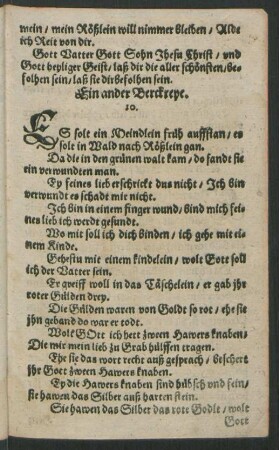 mein / mein Rößlein will nimmer bleiben / Alde
ich Reit von dir.
Gott Vatter Gott Sohn Jhesu Christ / vnd
Gott heyliger Geist / laß dir die aller schönsten / be-
folhen sein / laß sie dir befolhen sein.
Ein ander Berckreye.
10.
ES solt ein Meindlein früh auffstan / es
solt in Wald nach Rößlein gan.
Da die in den grünen walt kam / do fandt sie
ein verwundten man.
Ey feines lieb erschricke dus nicht / Ich bin
verwundt es schadt mir nicht.
Ich bin in einem finger wund / bind mich fei-
nes lieb ich werde gesundt.
Wo mit soll ich dich binden / ich geht mit ei-
nem Kinde.
Gehestu mit einem kindelein / wolt Gott soll
ich der Vatter sein.
Er greiff woll in das Täschelein / er gab jhr
roter Gülden drey.
Die Gülden waren von Goldt so rot / ehe sie
jhn geband do war er todt.
Wolt GOtt ich hett zween Hawers knaben /
Die mir mein lieb zu Grab hülffen tragen.
Ehe sie das wort recht auß gesprach / beschert
jhr Gott zween Hawers knaben.
Ey die Hawers knaben sind hübsch vnd fein /
sie hawen das Silber auß harten stein.
Sie hawen das Silber das rote Godle / wolt
Gott